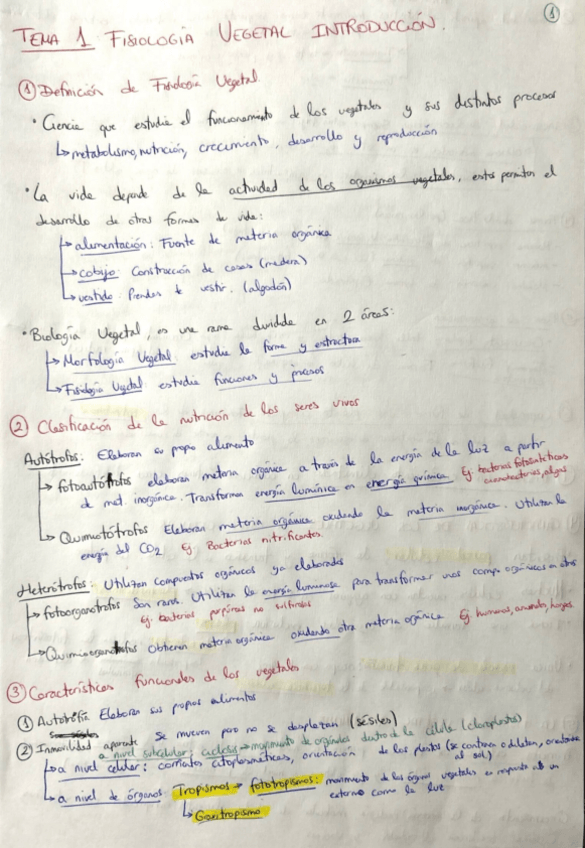 ①
TEMA 1 FISIOLOGÍA VEGETAL INTRODUCCIÓN.
① Definición de Fisiología Vegetal
• Ciencia que estudia el funcionamiento de los vegetales y sus distintos procesos
↳ metabolismo, nutrición, crecimiento, desarrollo y reproducción
• La vida depende de la actividad de los organismos vegetales, estos permiten el
desarrollo de otras formas de vida:
↳ alimentación: Fuente de materia orgánica
↳ cobijo: Construcción de casas (madera)
↳ vestido: Prendas de vestir. (algodón)
• Biología Vegetal, es una rama dividida en 2 áreas:
↳ Morfología Vegetal estudia la forma y estructura
↳ Fisiología Vegetal estudia funciones y procesos
② Clasificación de la nutrición de los seres vivos
Autótrofos: Elaboran su propio alimento
↳ fotoautótrofos elaboran materia orgánica a través de la energía de la luz a partir
de mat. inorgánica. Transforman energía lumínica en energía química. Ej: bacterias fotosintéticas
cianobacterias, algas
↳ Quimiotótrofos Elaboran materia orgánica oxidando la materia inorgánica. Utilizan la
energía del CO2 Ej Bacterias nitrificantes.
Heterótrofos: Utilizan compuestos orgánicos ya elaborados
↳ fotoorganotrofos Son raros. Utilizan la energía luminosa para transformar unos comp. orgánicos en otros
Ej: bacterias purpúreas no sulfurosas
↳ Quimioorganotrofos obtienen materia orgánica oxidando otra materia orgánica Ej: humanos, animales, hongos
③ Características funcionales de los vegetales
① Autotrofía Elaboran sus propios alimentos
② Inmovilidad aparente Se mueven pero no se desplazan (sésiles)
a nivel subcelular: ciclosis → movimiento de orgánulos dentro de la célula (cloroplastos)
↳ a nivel celular: corrientes citoplasmáticas, orientación de las plantas (se contraen o dilatan, orientarse
al sol.)
↳ a nivel de órganos: Tropismos → fototropismos: movimiento de los órganos vegetales en respuesta a un
externo como la luz
↳ Gravitropismo